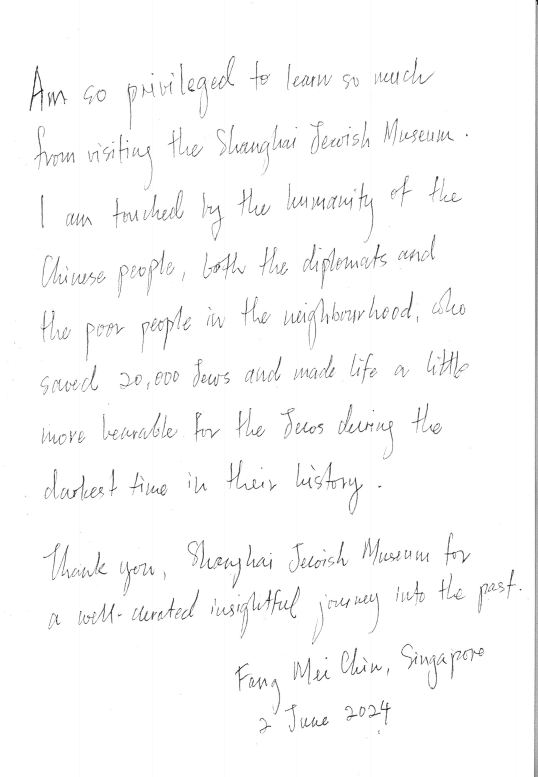 Am so privileged to learn so much
from visiting the Shanghai Jewish Museum.
I am touched by the humanity of the
Chinese people, both the diplomats and
the poor people in the neighbourhood, who
saved 20,000 Jews and made life a little
more bearable for the Jews during the
darkest time in their history.
Thank you, Shanghai Jewish Museum for
a well-curated insightful journey into the past.
Fang Mei Chin, Singapore
2 June 2024